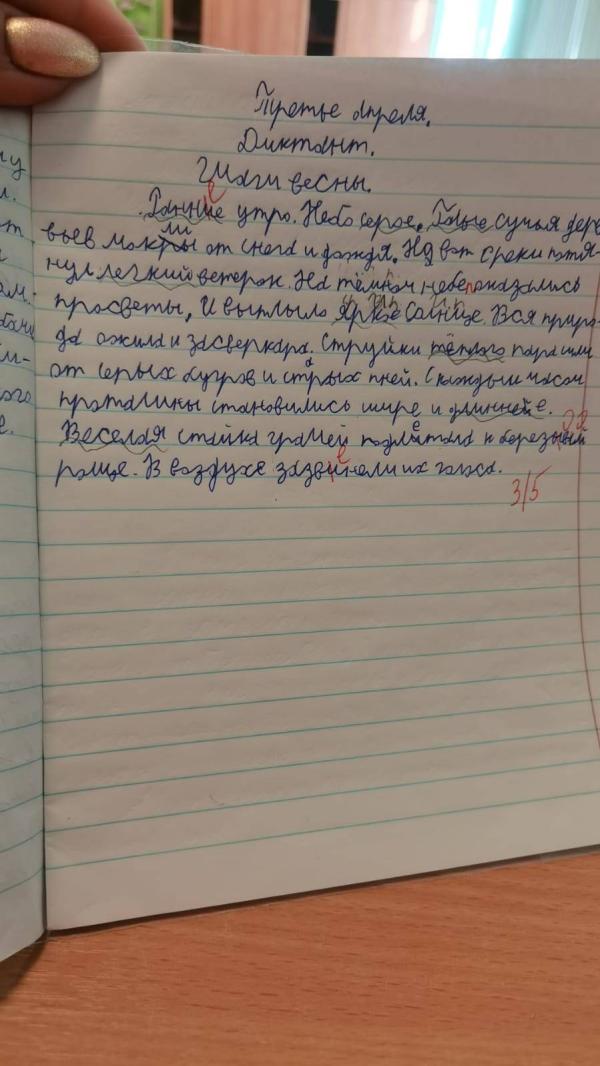 Третье апреля.
Диктант.
Шаги весны.
Ранние утро. Небо серое. Голые сучья дере
вьев мокры от снега и дождя. Но вот с реки потя-
нул легкий ветерок. На тёмном небе показались
просветы, и выплыло яркое солнце. Вся приро-
да ожила и засверкара. Струйки тёплого пара шли
от серых бугров и стрых пней. С каждым часом
проталины становились шире и длиннее.
Веселая стайка грачей подлетала к березывой
роще. В воздухе зазвинели их голоса.
3/5